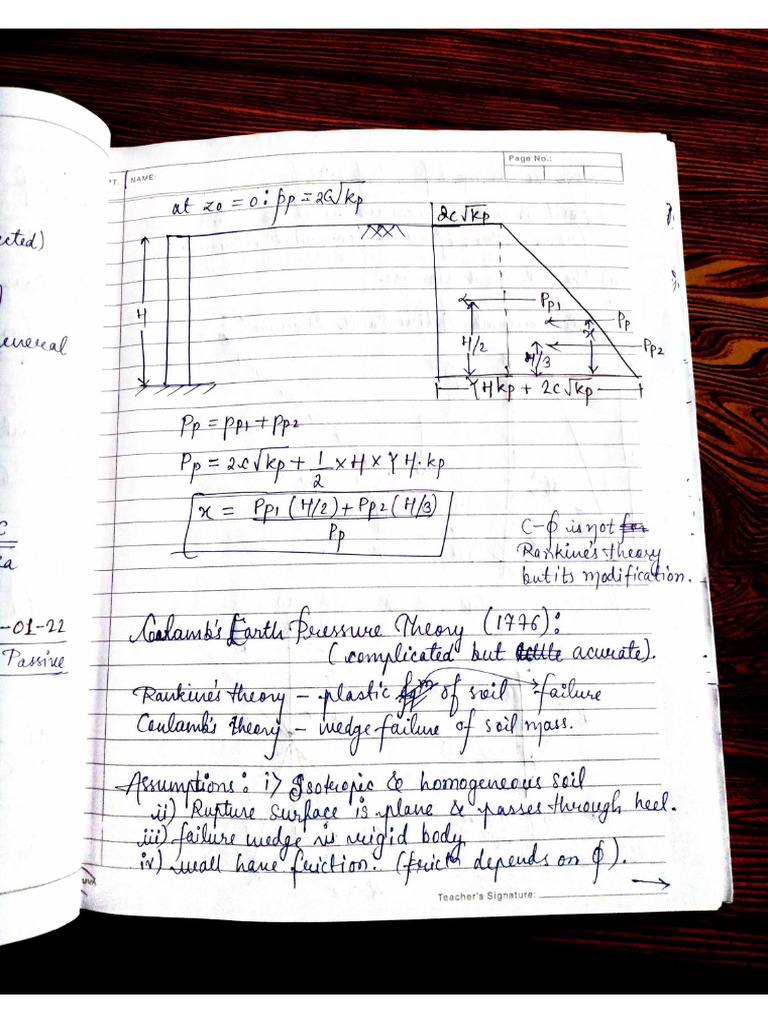 PT.
NAME:
Page No.:
at z0 = 0 : pp = 2C√kp
2c√kp
H
Pp1
Pp
Pp2
H/2
H/3
x
γHkp + 2c√kp
Pp = pp1 + pp2
Pp = 2c√kp + 1/2 × H × γH.kp
x = Pp1 (H/2) + Pp2 (H/3) / Pp
C-ϕ is not for
Rankine's theory
but its modification.
cted)
eneral
C
-01-22
Passive
Coulamb's Earth Pressure Theory (1776):
(complicated but acurate).
Rankine's theory – plastic of soil failure
Coulamb's theory – wedge failure of soil mass.
Assumptions: i) Isotropic & homogeneous soil
ii) Rupture surface is plane & passes through heel.
iii) failure wedge is rigid body
iv) wall have friction. (frictn depends on ϕ).
Teacher's Signature: